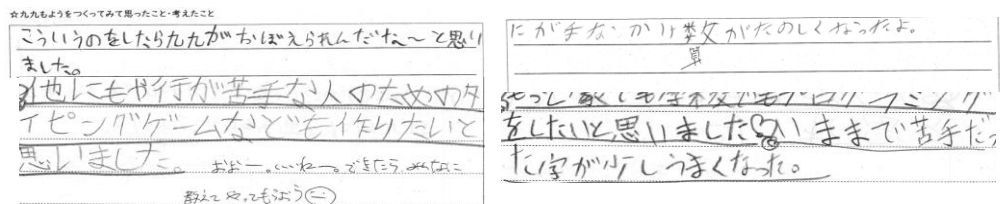 ☆九九もようをつくってみて思ったこと・考えたこと
こういうのをしたら九九がおぼえられんだな〜と思い
ました。
他にもや行が苦手な人のためのタ
イピングゲームなども作りたいと
思いました。
おおー。いいねー。できたら、みんなに
教えてやってもらおう
にが手なかけ算がたのしくなったよ。
算
もっと家でも学校でもプログラミング
をしたいと思いました♡いままで苦手だっ
た字が少しうまくなった。